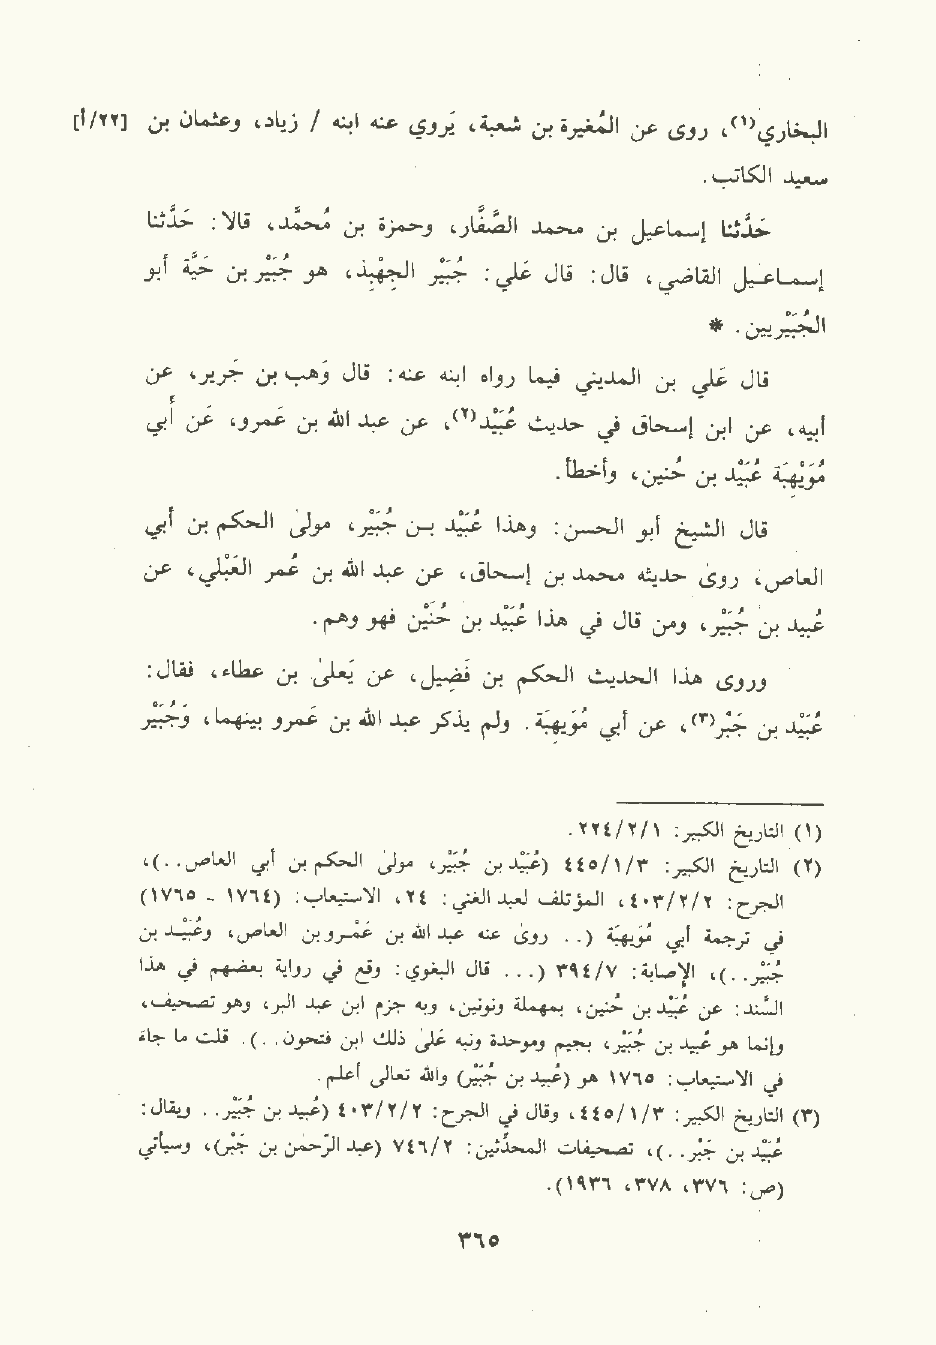 البخاري(١)، روى عن المُغيرة بن شعبة، يَروي عنه ابنه / زياد، وعثمان بن [٢٢/أ]
سعيد الكاتب.
حَدَّثنا إسماعيل بن محمد الصَّفَّار، وحمزة بن مُحمَّد، قالا: حَدَّثنا
إسماعيل القاضي، قال: قال عَلي: جُبَيْر الجِهْبِذ، هو جُبَيْر بن حَيَّة أبو
الجُبَيْريين. *
قال عَلي بن المديني فيما رواه ابنه عنه: قال وَهب بن جَرير، عن
أبيه، عن ابن إسحاق في حديث عُبَيْد(٢)، عن عبد الله بن عَمرو، عَن أَبي
مُوَيْهِبَة عُبَيْد بن حُنين، وأخطأ.
قال الشيخ أبو الحسن: وهذا عُبَيْد بن جُبَيْر، مولى الحكم بن أبي
العاص، روى حديثه محمد بن إسحاق، عن عبد الله بن عُمر العَبْلي، عن
عُبيد بن جُبَيْر، ومن قال في هذا عُبَيْد بن حُنَيْن فهو وهم.
وروى هذا الحديث الحكم بن فَضِيل، عن يَعلى بن عطاء، فقال:
عُبَيْد بن جَبْر(٣)، عن أبي مُوَيهِبَة. ولم يذكر عبد الله بن عَمرو بينهما، وَجُبَيْر
(١) التاريخ الكبير: ٢٢٤/٢/١.
(٢) التاريخ الكبير: ٤٤٥/١/٣ (عُبَيْد بن جُبَيْر، مولى الحكم بن أبي العاص..)،
الجرح: ٤٠٣/٢/٢، المؤتلف لعبد الغني: ٢٤، الاستيعاب: (١٧٦٤ - ١٧٦٥)
في ترجمة أبي مُوَيْهِبَة (.. روى عنه عبد الله بن عَمْرو بن العاص، وعُبَيْد بن
جُبَيْر..)، الإصابة: ٣٩٤/٧ (... قال البغوي: وقع في رواية بعضهم في هذا
السَّند: عن عُبَيْد بن حُنين، بمهملة ونونين، وبه جزم ابن عبد البر، وهو تصحيف،
وإنما هو عُبيد بن جُبَيْر، بجيم وموحدة ونبه على ذلك ابن فتحون..). قلت ما جاء
في الاستيعاب: ١٧٦٥ هو (عُبيد بن جُبَيْر) والله تعالى أعلم.
(٣) التاريخ الكبير: ٤٤٥/١/٣، وقال في الجرح: ٤٠٣/٢/٢ (عُبيد بن جُبَيْر.. ويقال:
عُبَيْد بن جَبْر..)، تصحيفات المحدِّثين: ٧٤٦/٢ (عبد الرَّحمن بن جَبْر)، وسيأتي
(ص: ٣٧٦، ٣٧٨، ١٩٣٦).
٣٦٥